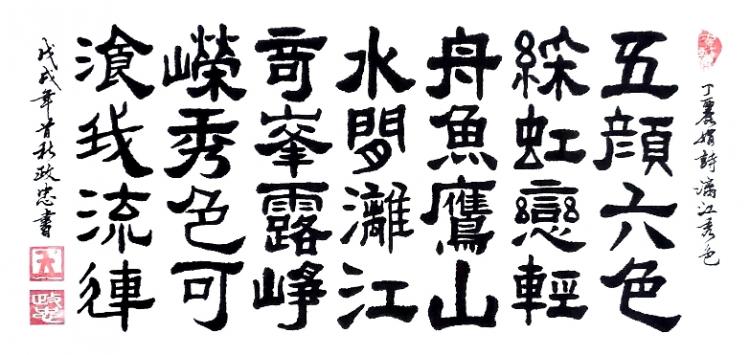 丁麗娟詩漓江秀色
五顔六色
綵虹戀輕
舟魚鷹山
水間灕江
竒峯露崢
嶸秀色可
湌我流連
戊戌年首秋政忠書